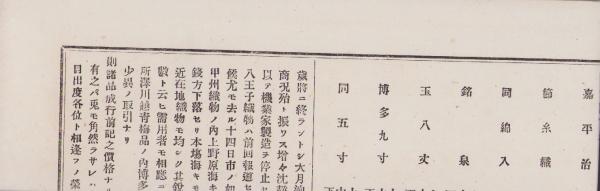 嘉平治
節糸織
同綿入
銘泉
玉八丈
博多九寸
同五寸
歳將ニ終ラントシ大月洵
商況殆ト振ハス增々沈靜
以テ機業家製造ヲ停止セ
八王子織物ハ前回報道セ
候尤モ去ル十四日市ノ如
甲州織物ノ内上野原海キ
錢方下落セリ本場海キモ
近在地織物モ均シク其銳
數ト云ヒ需用者モ相應ニ
所澤川越靑梅品ノ内博多
少異ノ取引ナリ
則諸品成行前記之價格ナル
有之バ兎モ角然ラサレハ
目出度各位ト相逢フノ榮